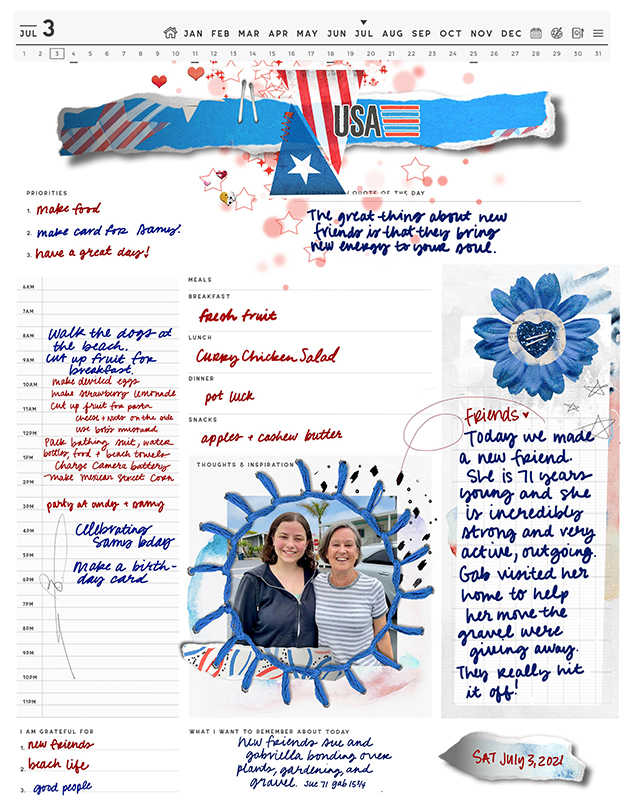 JUL 3
JAN FEB MAR APR MAY JUN JUL AUG SEP OCT NOV DEC
1 2 3 4 5 6 7 8 9 10 11 12 13 14 15 16 17 18 19 20 21 22 23 24 25 26 27 28 29 30 31
USA
PRIORITIES
1. make food
2. make card for Samy!
3. have a great day!
/ QUOTE OF THE DAY
The great thing about new
friends is that they bring
new energy to your soul.
6AM
7AM
8AM
Walk the dogs at
the beach.
9AM
Cut up fruit for
breakfast.
10AM
make deviled eggs
11AM
make strawberry lemonade
Cut up fruit for pasta
cheese + nuts on the side
use bob's mustard
12PM
Pack bathing suit, water
1PM
bottles, food + beach towels
Charge camera battery
2PM
make Mexican Street Corn
3PM
party at andy + samy
4PM
Celebrating
Samy bday
5PM
Make a birth-
day card
6PM
7PM
8PM
9PM
10PM
11PM
MEALS
BREAKFAST
fresh fruit
LUNCH
Curry Chicken Salad
DINNER
pot luck
SNACKS
apples + cashew butter
THOUGHTS & INSPIRATION
friends
Today we made
a new friend.
She is 71 years
young and she
is incredibly
strong and very
active, outgoing.
Gab visited her
home to help
her move the
gravel were
giving away.
They really hit
it off!
I AM GRATEFUL FOR
1. new friends
2. beach life
3. good people
WHAT I WANT TO REMEMBER ABOUT TODAY
New friends Sue and
gabriella bonding over
plants, gardening, and
gravel. Sue 71 gab 15 3/4
SAT July 3, 2021